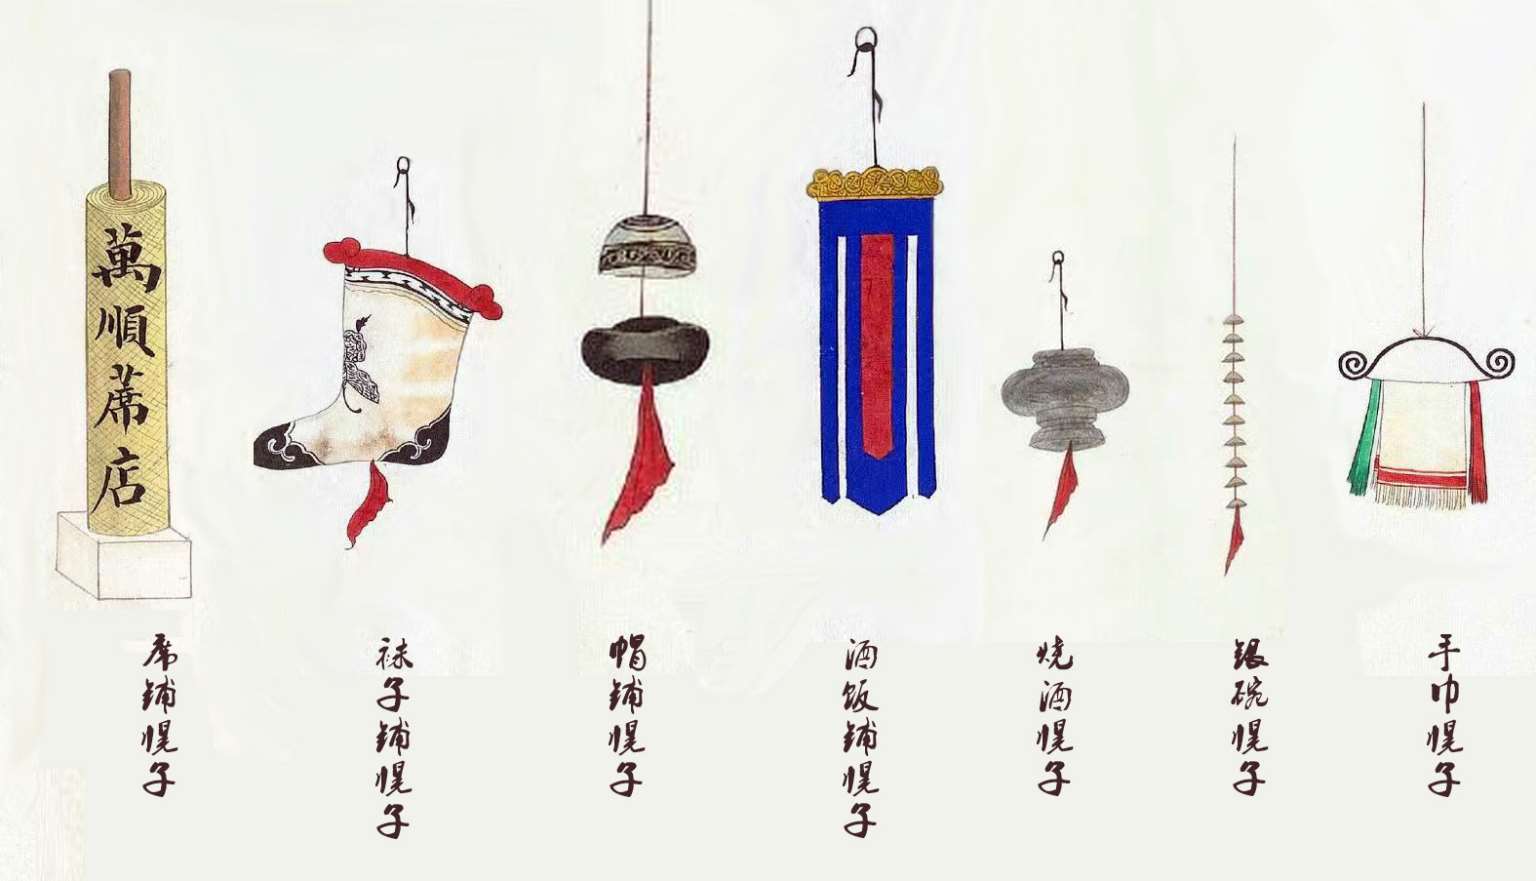 萬順蓆店
席铺幌子
袜子铺幌子
帽铺幌子
酒饭铺幌子
烧酒幌子
银碗幌子
手巾幌子